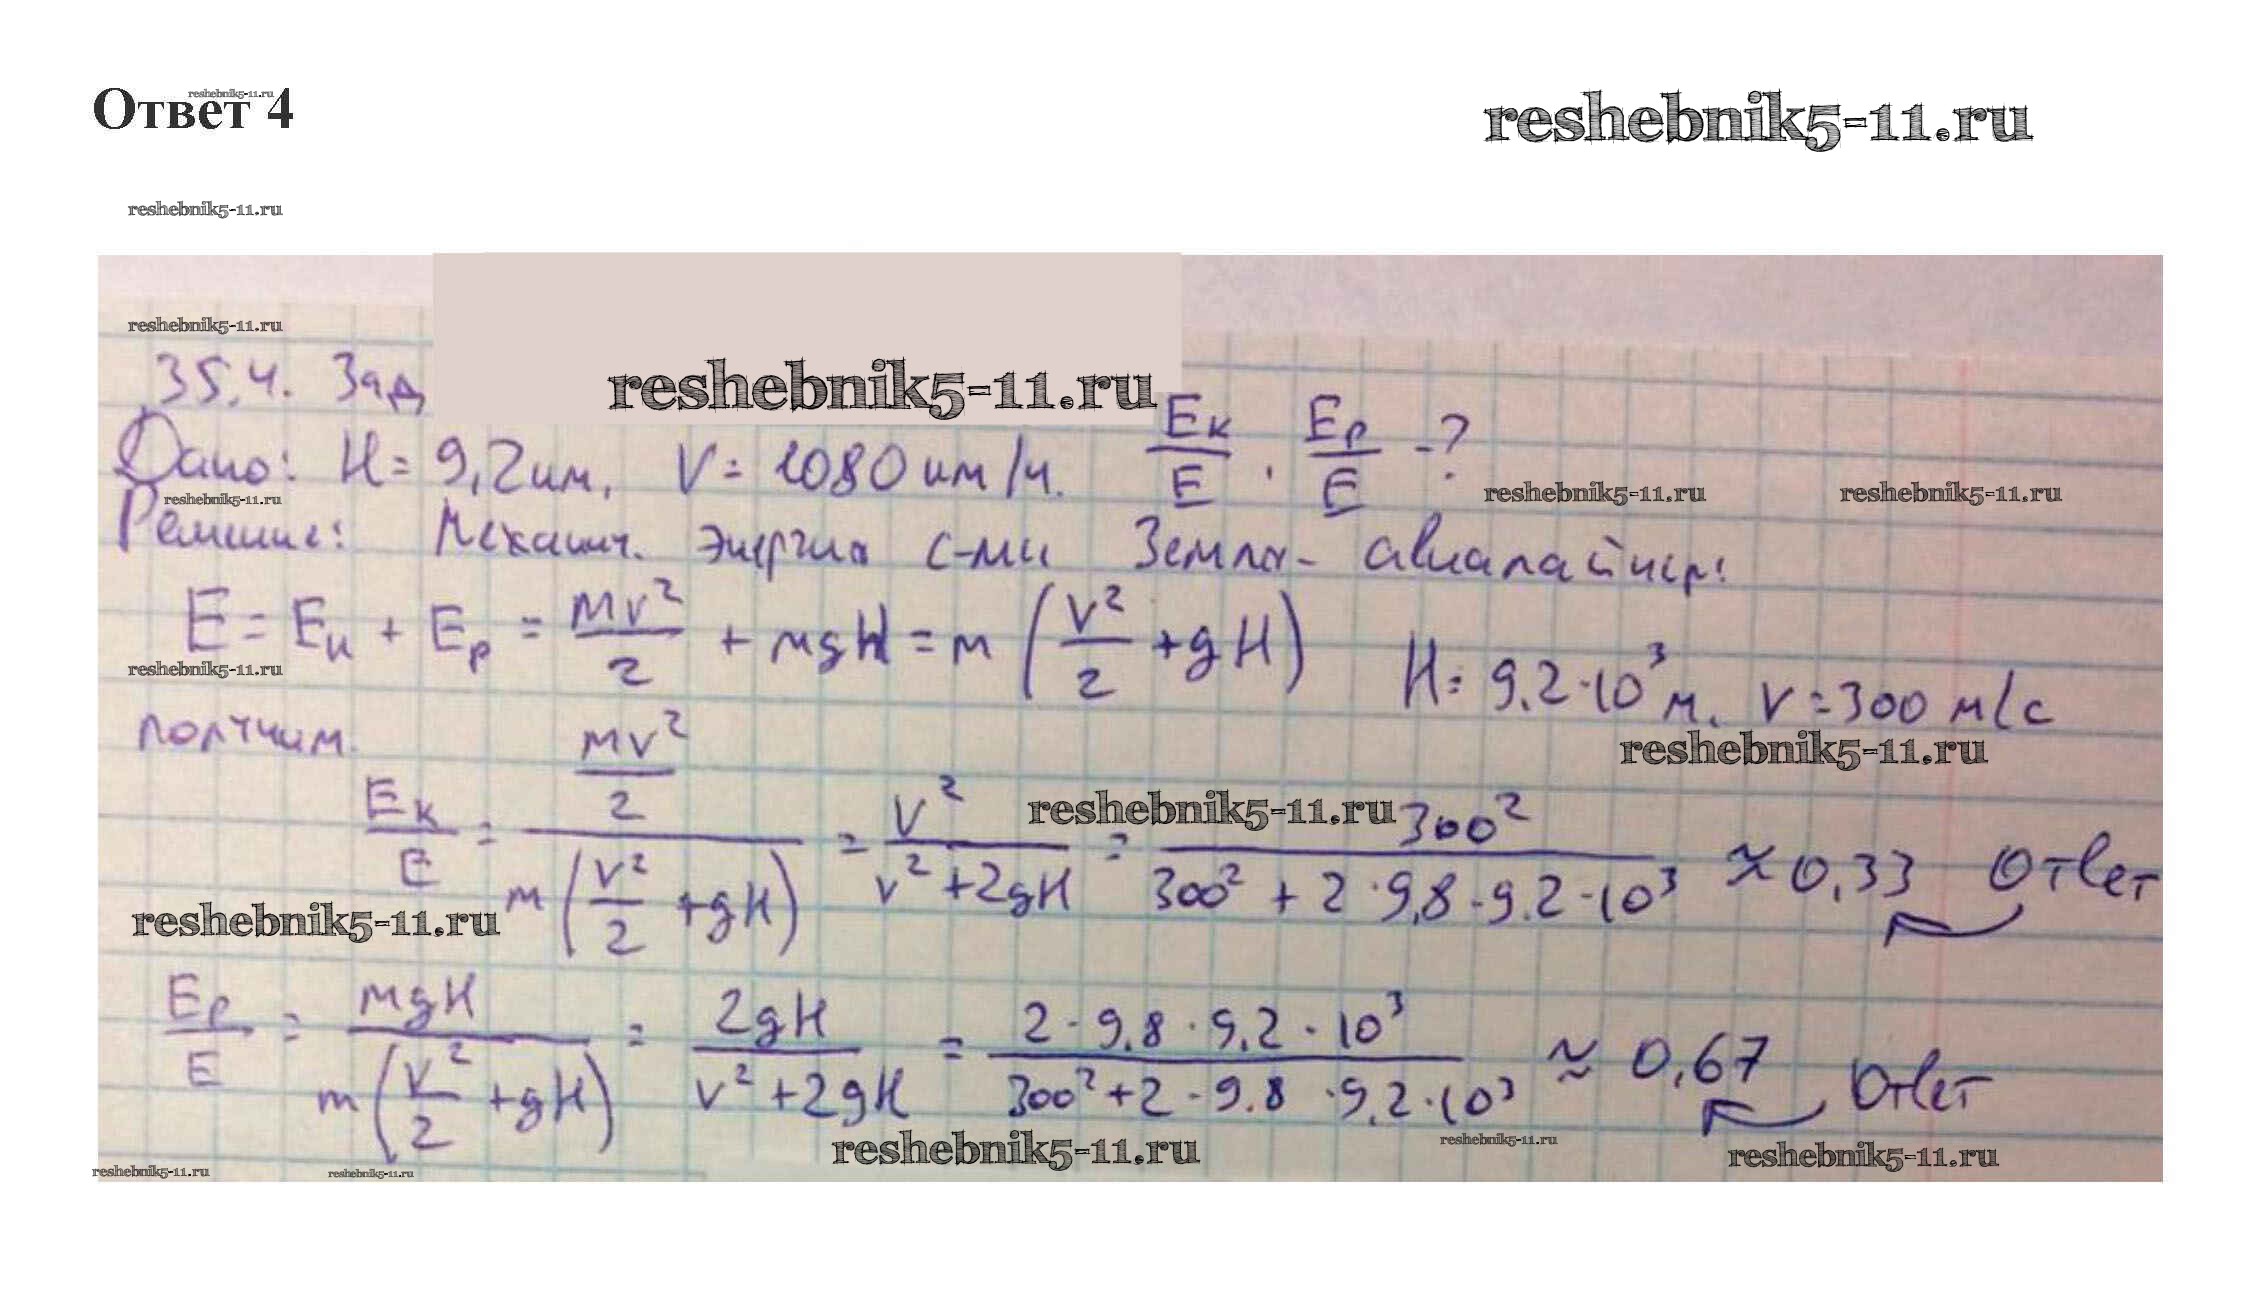 Ответ 4
reshebnik5-11.ru
reshebnik5-11.ru
reshebnik5-11.ru
reshebnik5-11.ru
35.4. Зад
reshebnik5-11.ru
Дано: H = 9,2 км, V = 1080 км/ч. Eк/E, Eр/E - ?
reshebnik5-11.ru reshebnik5-11.ru reshebnik5-11.ru
Решение: Механич. энергия с-мы Земля - авиалайнер:
E = Eк + Eр = mv²/2 + mgH = m(v²/2 + gH) H = 9,2·10³ м, V = 300 м/с
reshebnik5-11.ru
получим.
reshebnik5-11.ru
reshebnik5-11.ru
Eк/E = (mv²/2)/(m(v²/2 + gH)) = v²/(v² + 2gH) = 300²/(300² + 2·9,8·9,2·10³) ≈ 0,33 Ответ
reshebnik5-11.ru
Eр/E = mgH/(m(v²/2 + gH)) = 2gH/(v² + 2gH) = 2·9,8·9,2·10³/(300² + 2·9,8·9,2·10³) ≈ 0,67 Ответ
reshebnik5-11.ru reshebnik5-11.ru reshebnik5-11.ru
reshebnik5-11.ru reshebnik5-11.ru